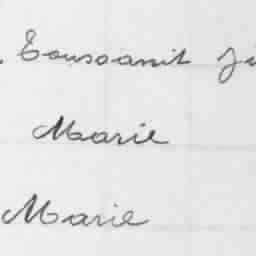 Toussaint
Marie
Marie